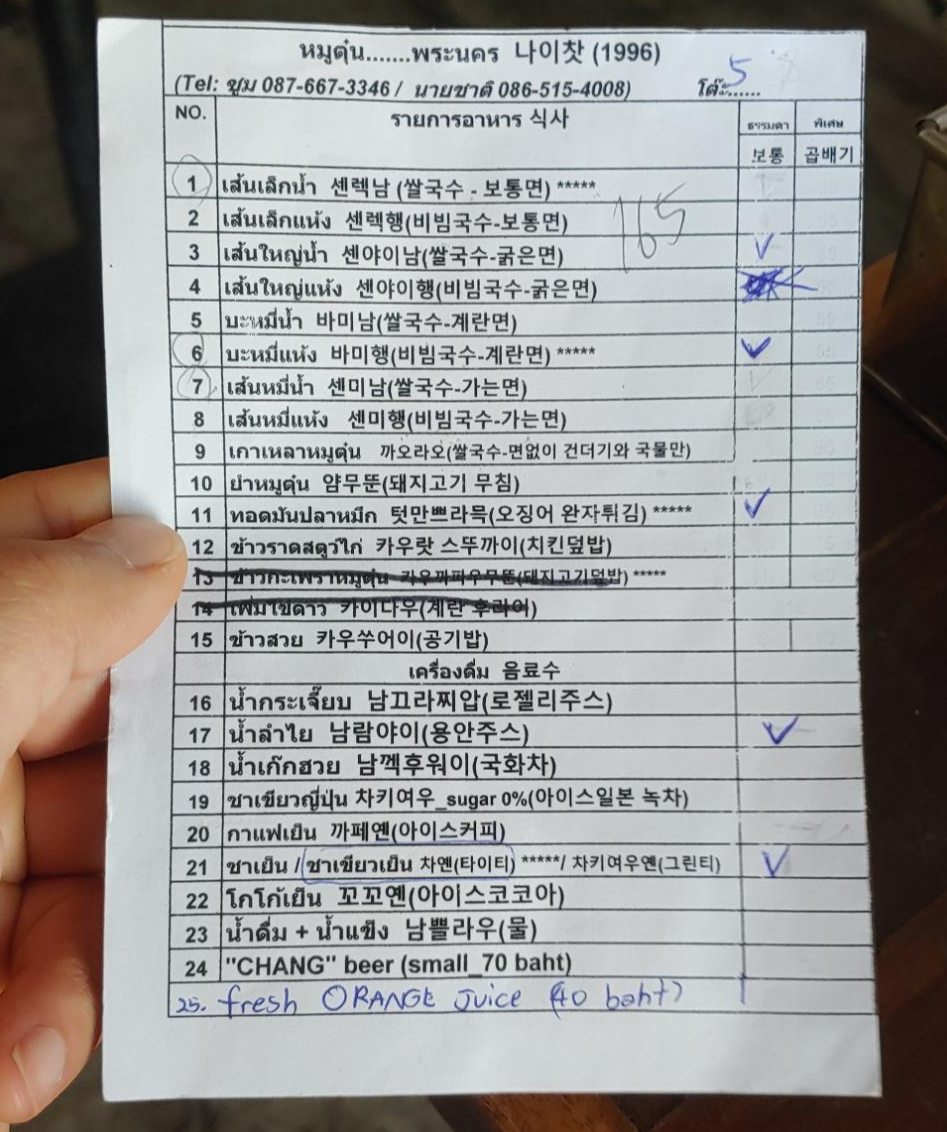 หมูตุ๋น.......พระนคร 나이찻 (1996)
(Tel: ชูม 087-667-3346 / นายชาติ 086-515-4008) โต๊ะ...... 5
NO. รายการอาหาร 식사 ธรรมดา พิเศษ
보통 곱배기
1 เส้นเล็กน้ำ 센렉남 (쌀국수 - 보통면) *****
165
2 เส้นเล็กแห้ง 센렉행(비빔국수-보통면)
3 เส้นใหญ่น้ำ 센야이남(쌀국수-굵은면)
4 เส้นใหญ่แห้ง 센야이행(비빔국수-굵은면)
5 บะหมี่น้ำ 바미남(쌀국수-계란면)
6 บะหมี่แห้ง 바미행(비빔국수-계란면) *****
7 เส้นหมี่น้ำ 센미남(쌀국수-가는면)
8 เส้นหมี่แห้ง 센미행(비빔국수-가는면)
9 เกาเหลาหมูตุ๋น 까오라오(쌀국수-면없이 건더기와 국물만)
10 ยำหมูตุ๋น 얌무뚠(돼지고기 무침)
11 ทอดมันปลาหมึก 텃만쁘라믁(오징어 완자튀김) *****
12 ข้าวราดสตูว์ไก่ 카우랏 스뚜까이(치킨덮밥)
13 ข้าวกะเพราหมูตุ๋น 카우까파우무뚠(돼지고기덮밥) *****
14 เพิ่มไข่ดาว 카이다우(계란 후라이)
15 ข้าวสวย 카우쑤어이(공기밥)
เครื่องดื่ม 음료수
16 น้ำกระเจี๊ยบ 남끄라찌압(로젤리주스)
17 น้ำลำไย 남람야이(용안주스)
18 น้ำเก๊กฮวย 남껙후워이(국화차)
19 ชาเขียวญี่ปุ่น 차키여우_sugar 0%(아이스일본 녹차)
20 กาแฟเย็น 까페옌(아이스커피)
21 ชาเย็น / ชาเขียวเย็น 차옌(타이티) *****/ 차키여우옌(그린티)
22 โกโก้เย็น 꼬꼬옌(아이스코코아)
23 น้ำดื่ม + น้ำแข็ง 남쁠라우(물)
24 "CHANG" beer (small_70 baht)
25. fresh ORANGE Juice (40 baht)